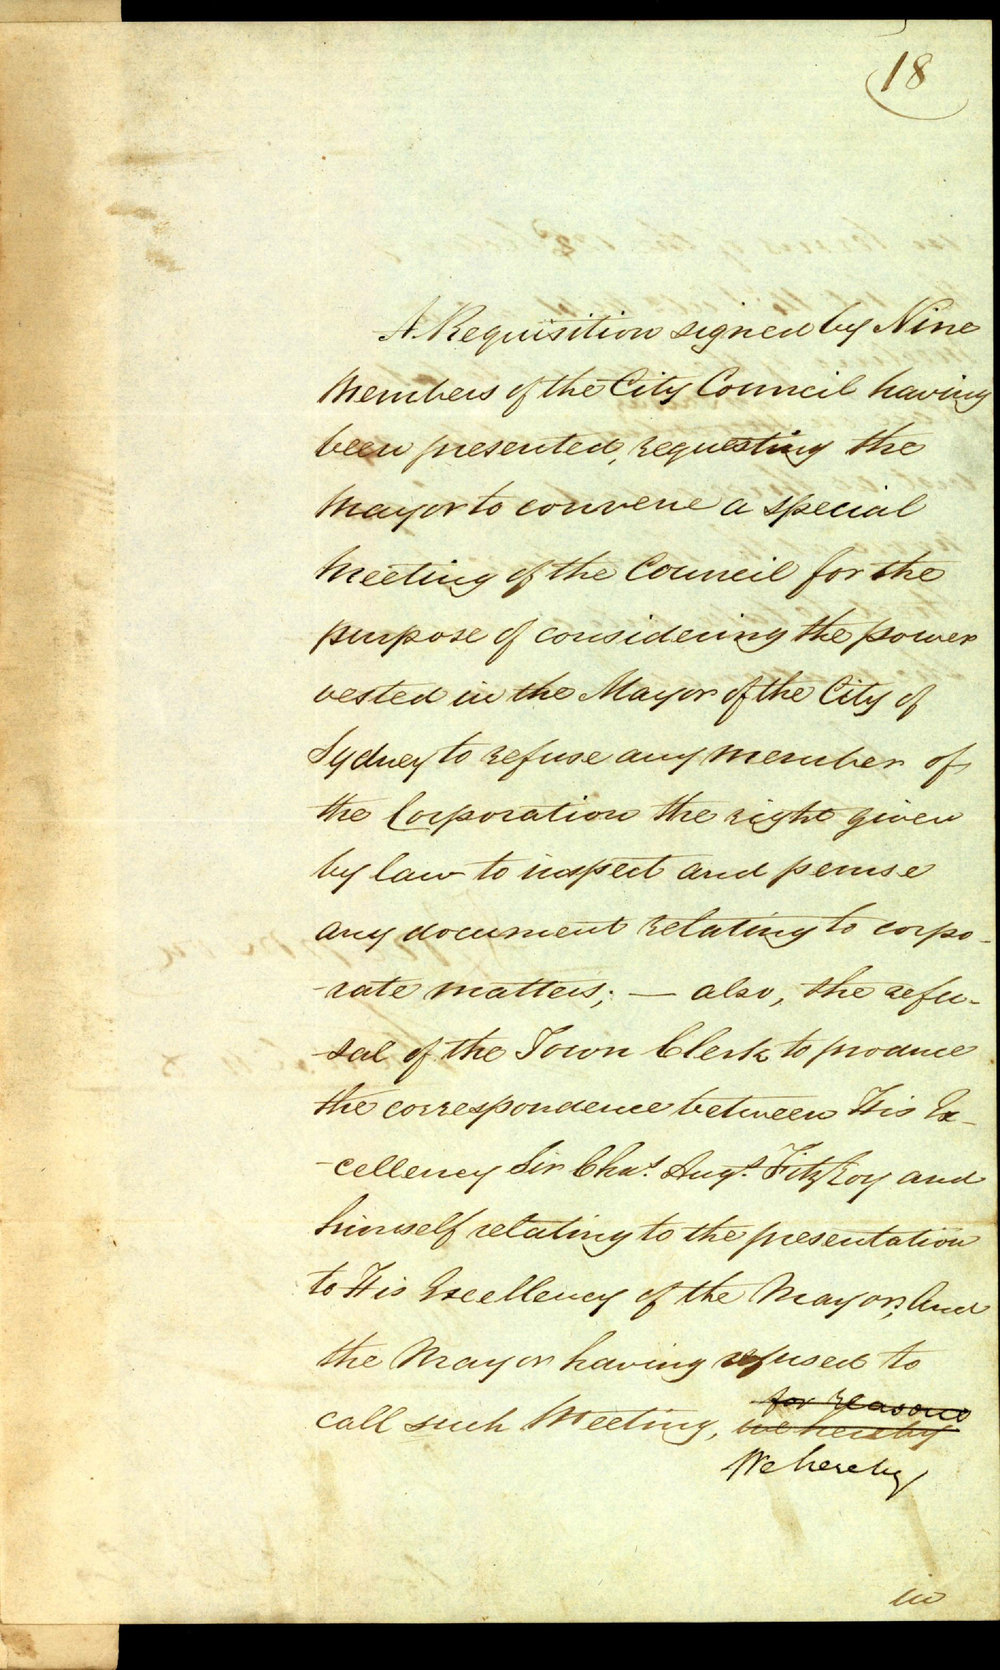 18
A Requisition signed by Nine
Members of the City Council having
been presented, requesting the
Mayor to convene a special
Meeting of the Council for the
purpose of considering the power
vested in the Mayor of the City of
Sydney to refuse any member of
the Corporation the right given
by law to inspect and peruse
any document relating to corpo-
-rate matters; — also, the refu-
-sal of the Town Clerk to produce
the correspondence between His Ex-
-cellency Sir Chas. Augs. FitzRoy and
himself relating to the presentation
to His Excellency of the Mayor; And
the Mayor having refused to
for reasons
call such Meeting, we hereby
We hereby
in